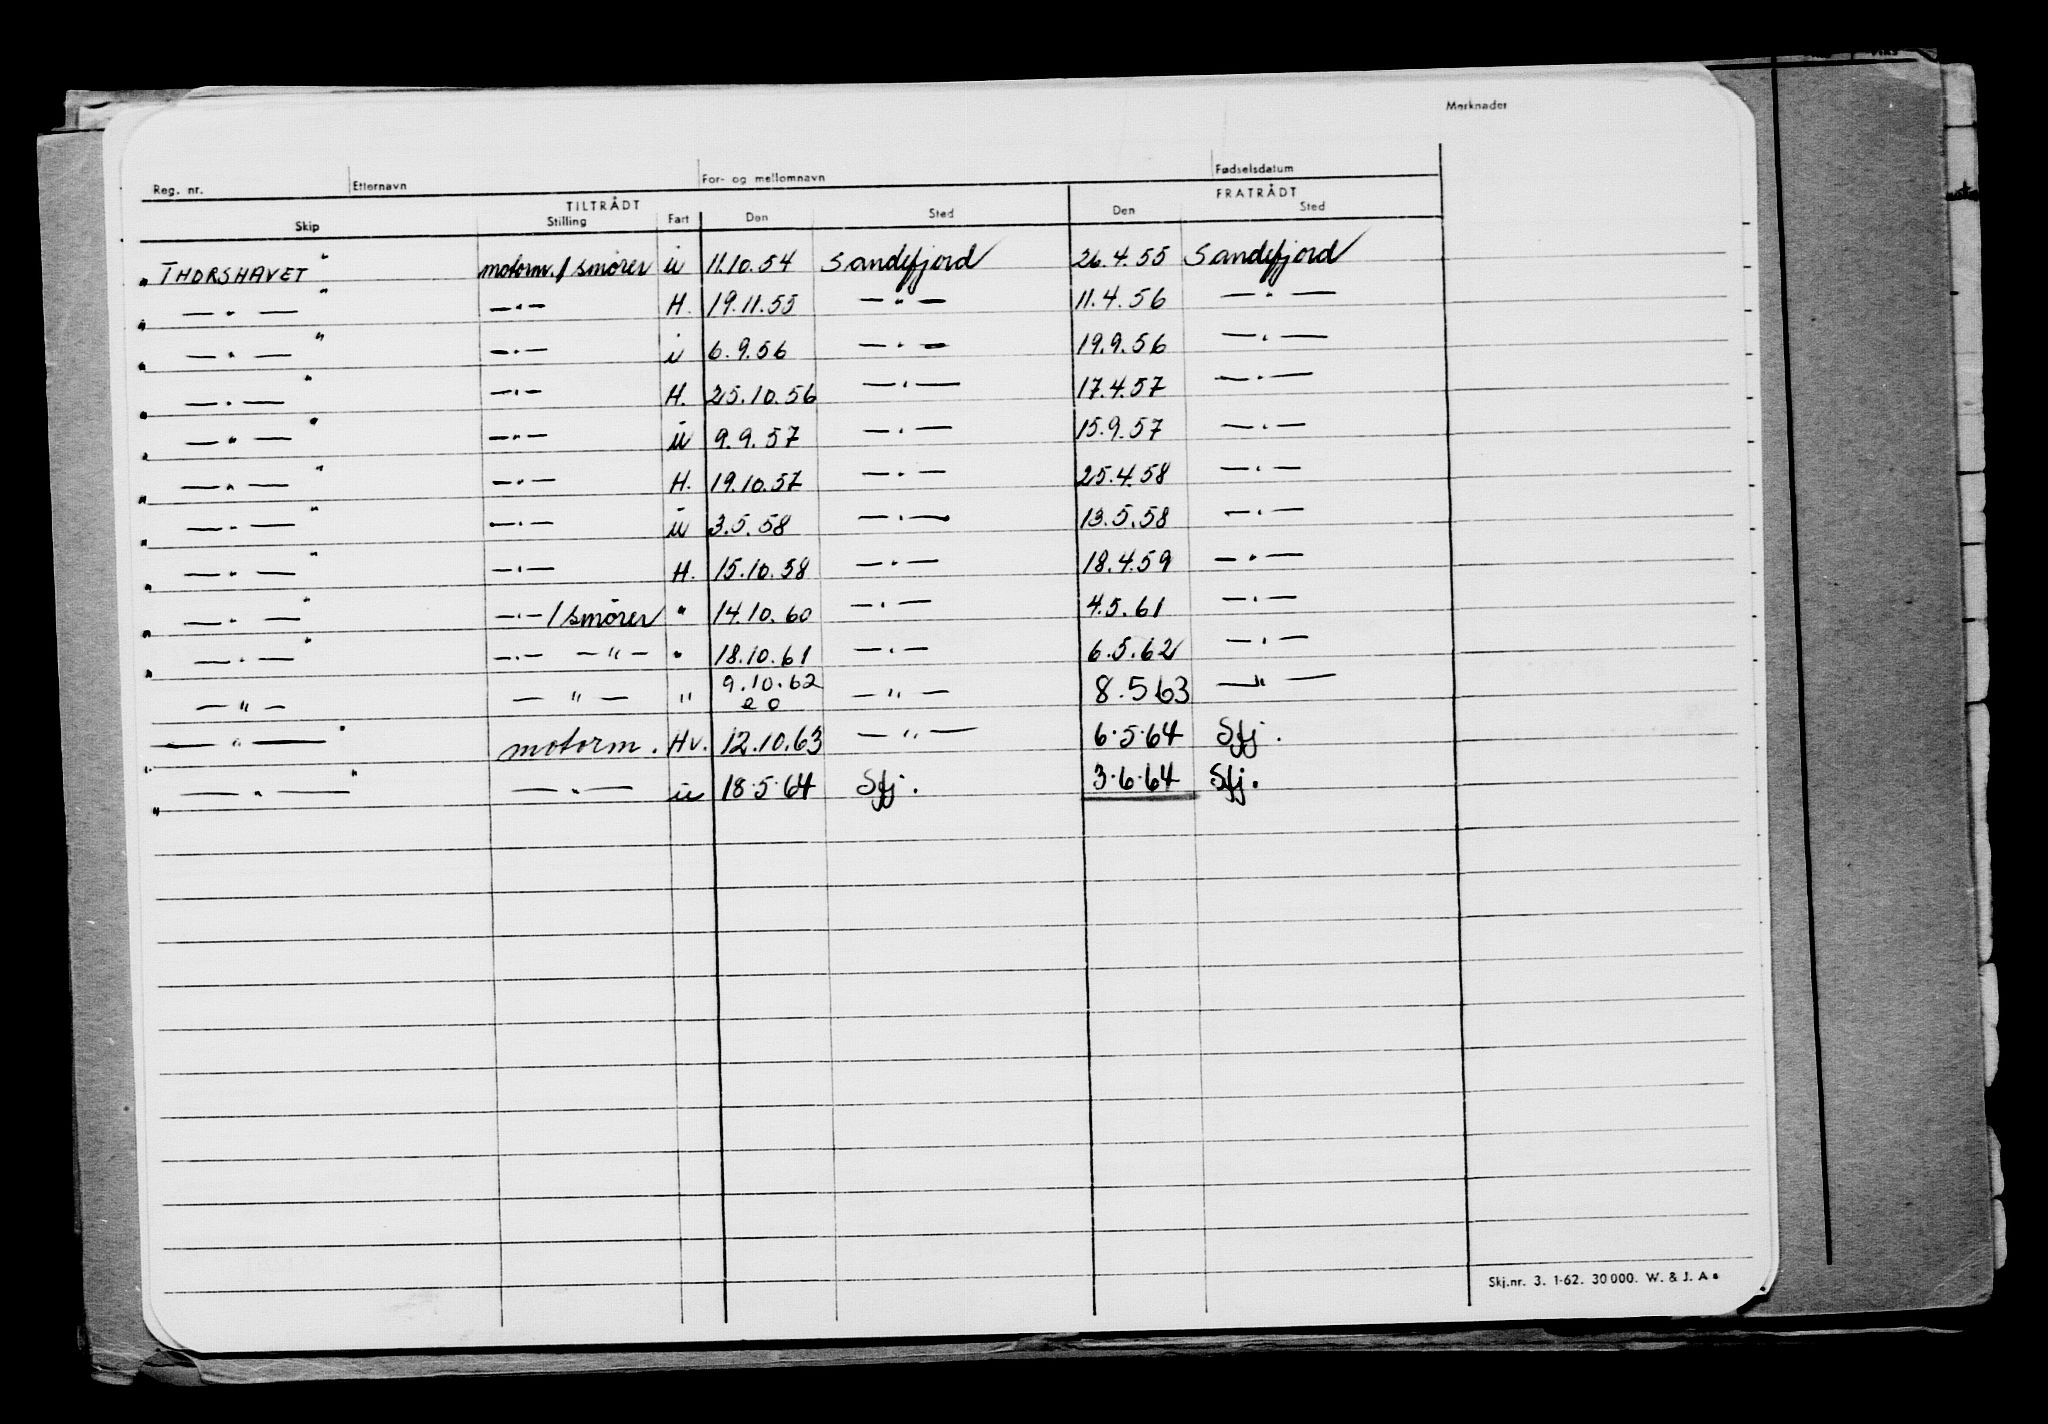 Merknader
Reg. nr. Etternavn For- og mellomnavn Fødselsdatum
TILTRÅDT FRATRÅDT
Skip Stilling Fart Den Sted Den Sted
" THORSHAVET " motorm./smører u 11.10.54 Sandefjord 26.4.55 Sandefjord
" — " — " — " — H. 19.11.55 — " — 11.4.56 — " —
" — " — " — " — u 6.9.56 — " — 19.9.56 — " —
" — " — " — " — H. 25.10.56 — " — 17.4.57 — " —
" — " — " — " — u 9.9.57 — " — 15.9.57 — " —
" — " — " — " — H. 19.10.57 — " — 25.4.58 — " —
" — " — " — " — u 3.5.58 — " — 13.5.58 — " —
" — " — " — " — H. 15.10.58 — " — 18.4.59 — " —
" — " — " — " — /smører " 14.10.60 — " — 4.5.61 — " —
" — " — " — " — — " — " 18.10.61 — " — 6.5.62 — " —
— " — — " — " 9.10.62 — " — 8.5.63 — " —
— " — " motorm. Hv. 12.10.63 — " — 6.5.64 Sfj.
" — " — " — " — u 18.5.64 Sfj. 3.6.64 Sfj.
Skj.nr. 3. 1-62. 30 000. W. & J. As